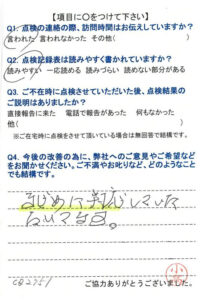 【項目に○をつけて下さい】
Q1. 点検の連絡の際、訪問時間はお伝えしていますか?
言われた 言われなかった その他( )
Q2. 点検記録表は読みやすく書かれていますか?
読みやすい 一応読める 読みづらい 読めない部分がある
Q3. ご不在時に点検させていただいた後、点検結果の
ご説明はありましたか?
直接報告に来た 電話で報告があった 何もなかった
他( )
※ご在宅時に点検をさせて頂いている場合は無回答で結構です。
Q4. 今後の改善の為に、弊社へのご意見やご希望など
をお聞かせください。ご不満やお叱りなど、どのようなこと
でも結構です。
まじめに対応していた
ご協力ありがとうございました。